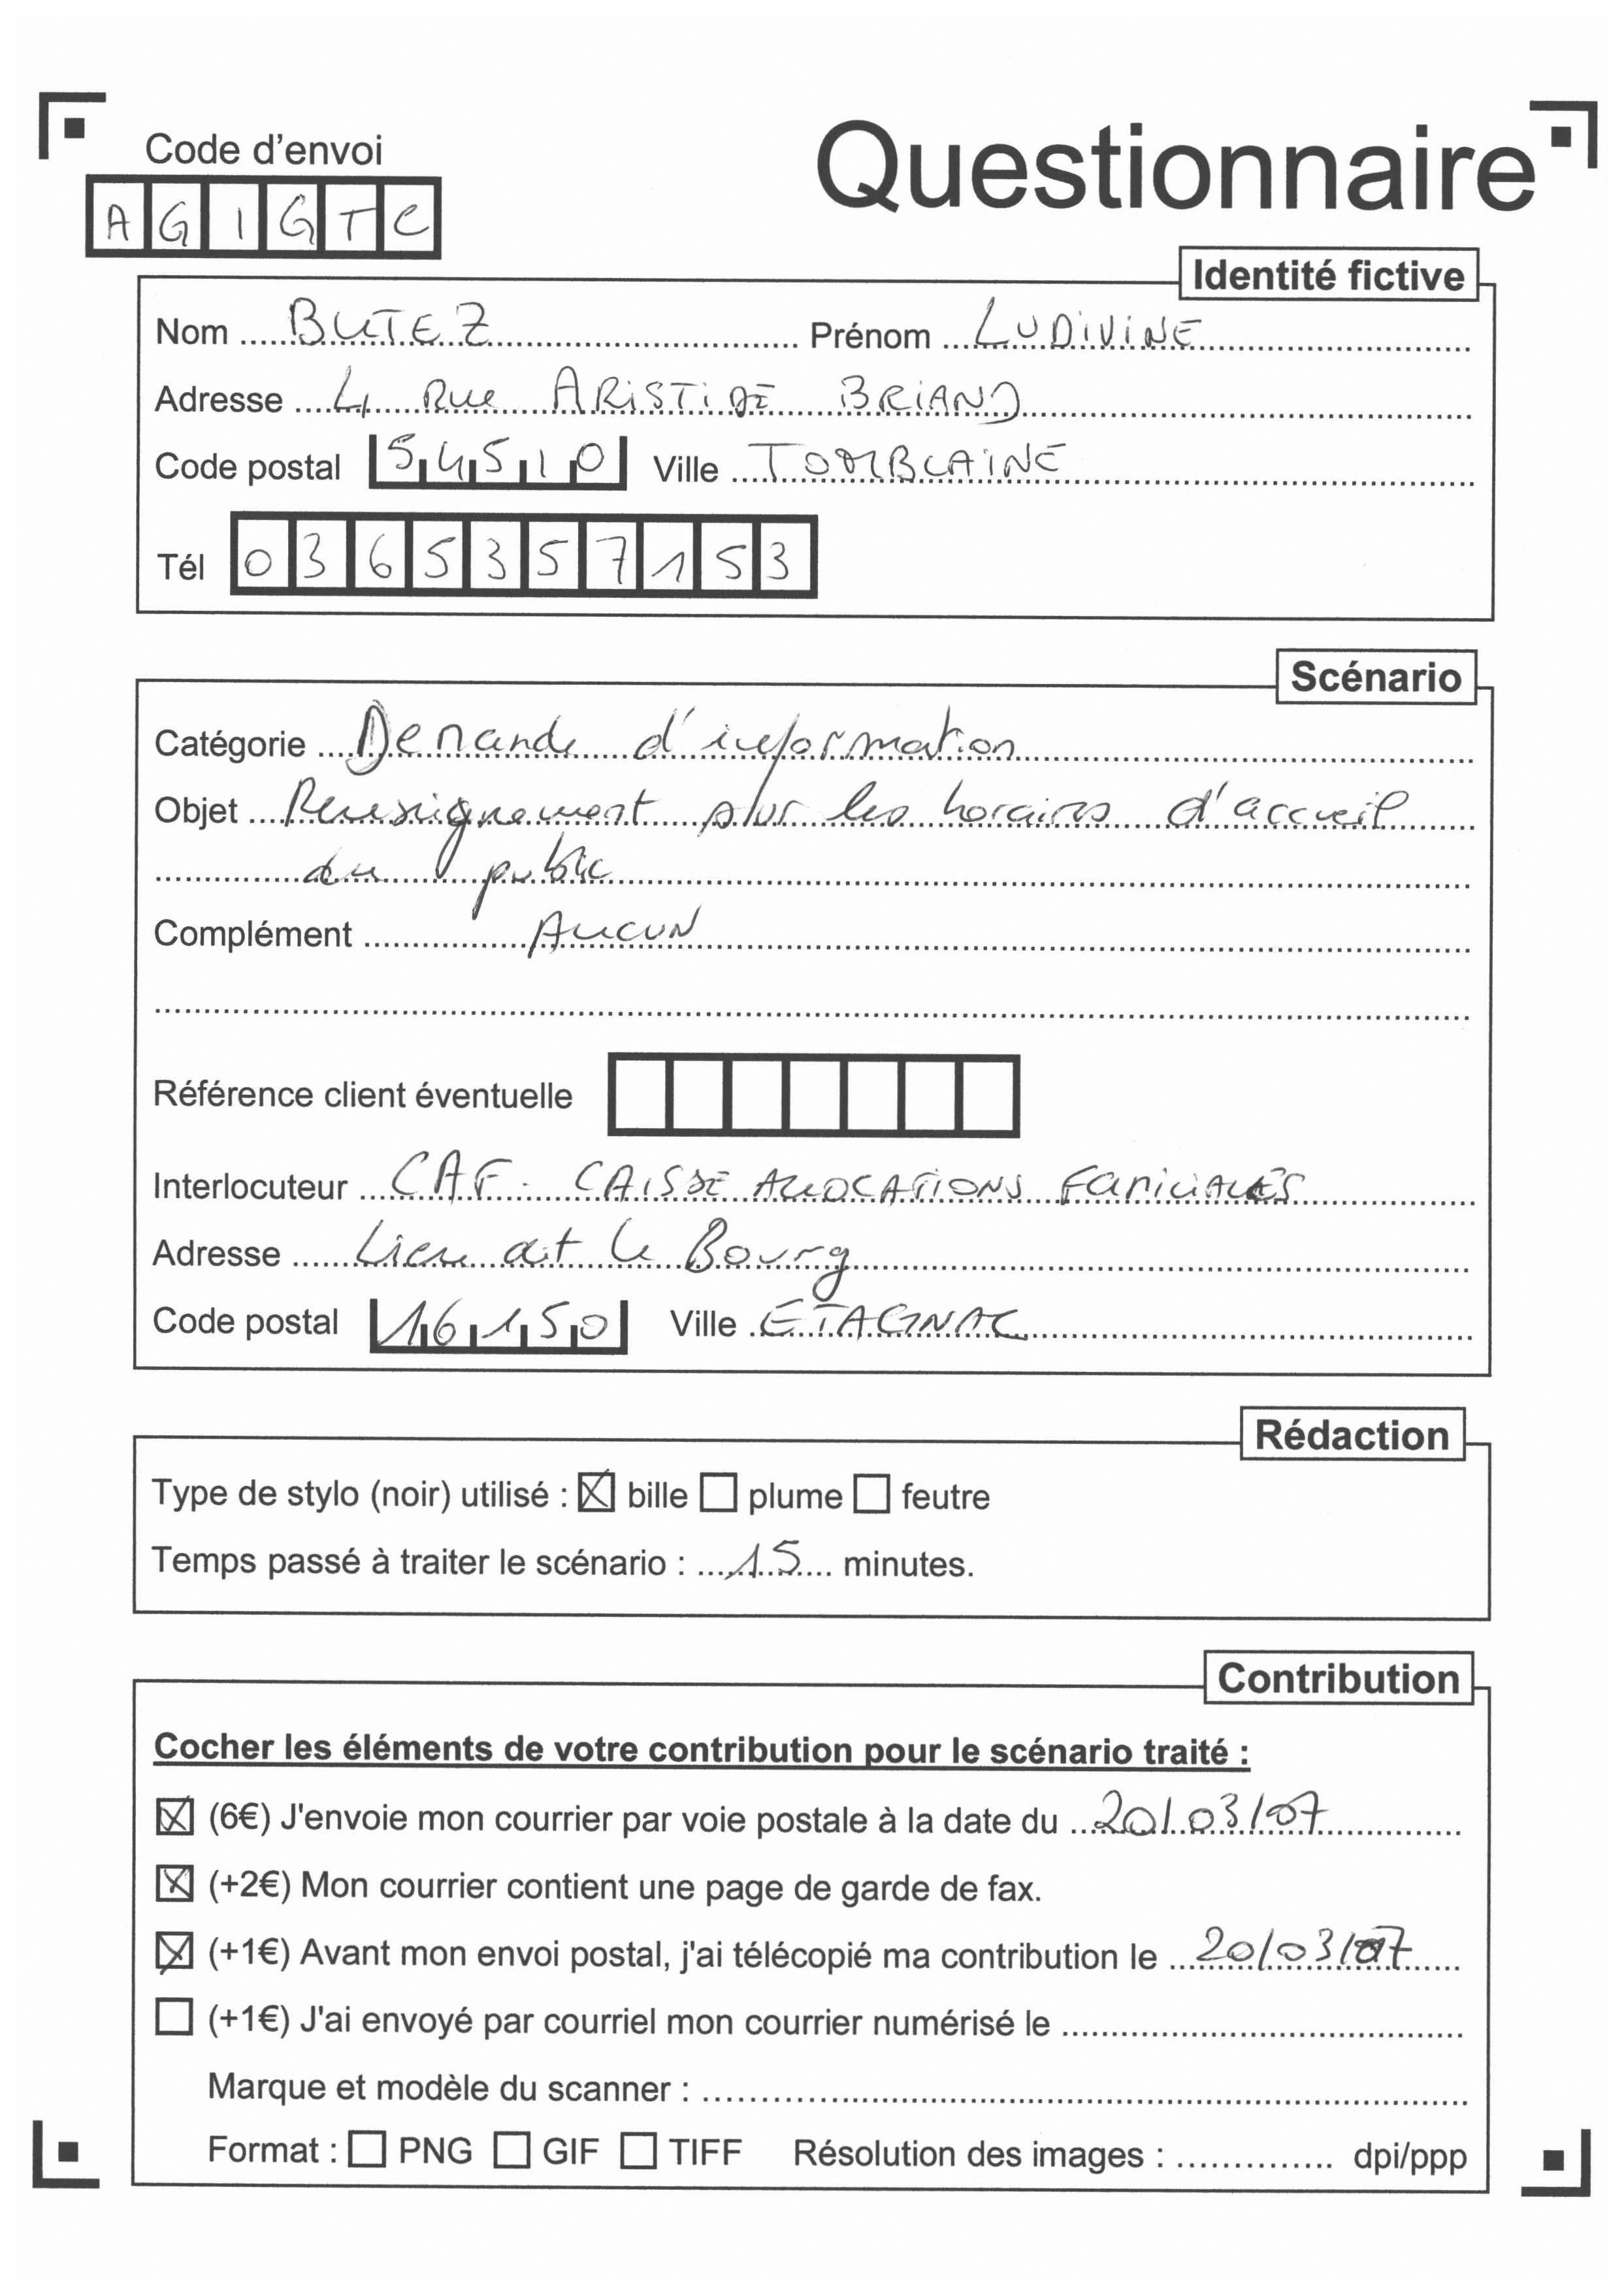 Code d'envoi
Questionnaire
AGIGTC
Identité fictive
Nom BUTEZ Prénom LUDIVINE
Adresse 4 Rue ARISTIDE BRIAND
Code postal 54510 Ville TOMBLAINE
Tél 0365357153
Scénario
Catégorie Demande d'information
Objet Renseignement sur les horaires d'accueil
du public
Complément AUCUN
Référence client éventuelle
Interlocuteur CAF. CAISSE ALLOCATIONS FAMILIALES
Adresse Lieu dit le Bourg
Code postal 16150 Ville ETAGNAC
Rédaction
Type de stylo (noir) utilisé : bille plume feutre
Temps passé à traiter le scénario : 15 minutes.
Contribution
Cocher les éléments de votre contribution pour le scénario traité :
(6€) J'envoie mon courrier par voie postale à la date du 20/03/07
(+2€) Mon courrier contient une page de garde de fax.
(+1€) Avant mon envoi postal, j'ai télécopié ma contribution le 20/03/07
(+1€) J'ai envoyé par courriel mon courrier numérisé le
Marque et modèle du scanner :
Format : PNG GIF TIFF Résolution des images : dpi/ppp